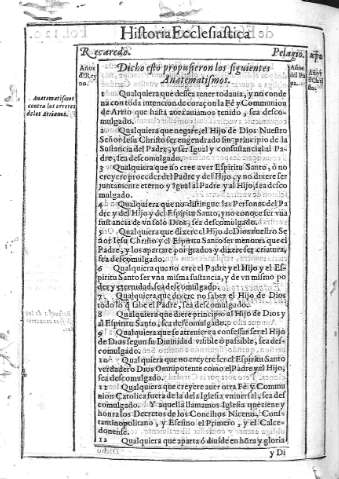 Historia Ecclesiastica
Recaredo. Pelagio.
Dicho esto propusieron los siguientes
Anatematismos.
Años de Rey no.
Anatematismos
contra los errores
de los Arrianos.
1 Qualquiera que dessea tener todauia, y no conde
na con toda intencion de coraçon la Fè y Communion
de Arrio que hasta aora auemos tenido, sea desco-
mulgado.
2 Qualquiera que negare, el Hijo de Dios Nuestro
Señor Iesu Christo ser engendrado sin principio de la
Sustancia del Padre, y ser Igual y consustancial al Pa-
dre, sea descomulgado.
3 Qualquiera que no cree auer Espiritu Santo, ò no
creyere proceder del Padre y del Hijo, y no dixere ser
juntamente eterno y Igual al Padre y al Hijo, sea desco
mulgado.
4 Qualquiera que no distingue las Personas del Pa
dre y del Hijo y del Espiritu Santo, y no conosce ser vna
sustancia de vn solo Dios, sea descomulgado.
5 Qualquiera que dixere el Hijo de Dios nuestro Se
ñor Iesu Christo y el Espiritu Santo ser menores que el
Padre, y los apartare por grados y dixere ser criatura,
sea descomulgado.
6 Qualquiera que no cree el Padre y el Hijo y el Es-
piritu Santo ser vna misma sustancia, y de vn mismo po
der y eternidad, sea descomulgado.
7 Qualquiera que dixere no saber el Hijo de Dios
todo lo que sabe el Padre, sea descomulgado.
8 Qualquiera que diere principio al Hijo de Dios y
al Espiritu Santo, sea descomulgado.
9 Qualquiera que se atreuiere a confessar ser el Hijo
de Dios segun su Diuinidad visible ò passible, sea des-
comulgado.
10 Qualquiera que no creyere ser el Espiritu Santo
verdadero Dios Omnipotente como el Padre y el Hijo,
sea descomulgado.
11 Qualquiera que creyere auer otra Fè y Commu
nion Catolica fuera de la de la Iglesia vniuersal, sea des
comulgado. Y aquella llamamos Iglesia que tiene y
honra los Decretos de los Concilios Niceno, Cons-
tantinopolitano, y Efesino el Primero, y el Calce-
donense.
12 Qualquiera que aparta ò diuide en hõra y gloria
y Di